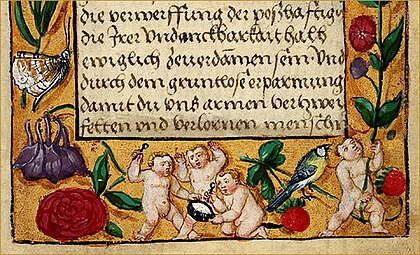 die verwerffung der poßhafftige
die Irer Vndanckbarkait hath
ewiglich Zeuerdamen sein Vnd
durch dem gruntlose erparmung
damit du vns armen verzwei
felten vnd verlornen mensche